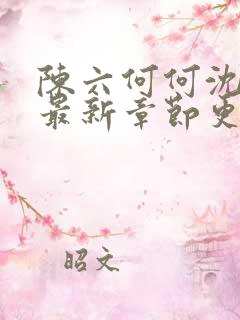 陳六何何沈
最新章節更
昭文